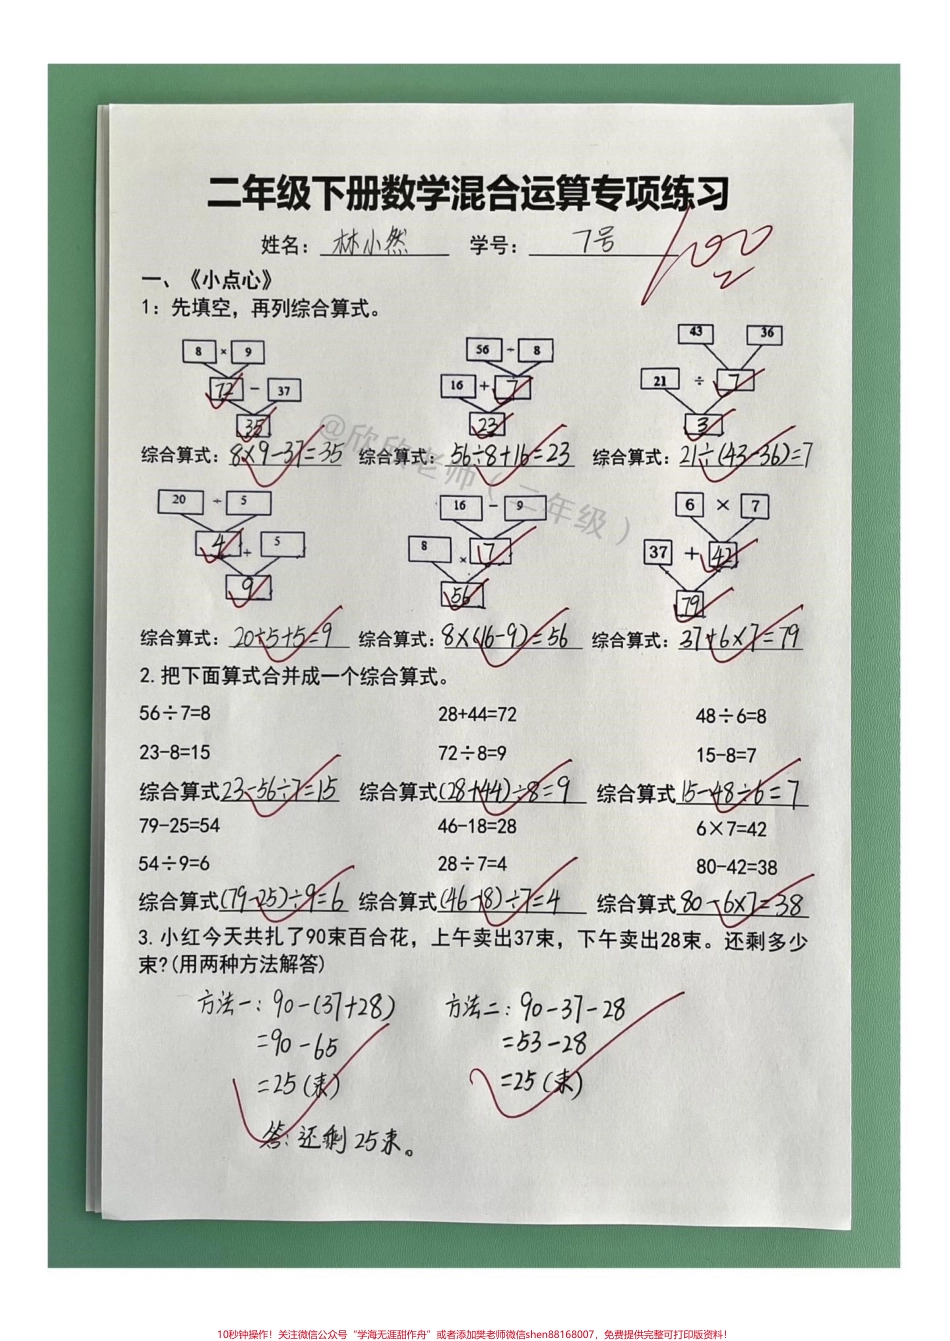 二年级下册数学混合运算专项练习
姓名：林小然 学号：7号
100
一、《小点心》
1：先填空，再列综合算式。
8 × 9 56 ÷ 8 43 36
72 - 37 16 + 7 21 ÷ 7
35 23 3
综合算式：8×9-37=35 综合算式：56÷8+16=23 综合算式：21÷(43-36)=7
20 ÷ 5 16 - 9 6 × 7
4 + 5 8 × 7 37 + 42
9 56 79
综合算式：20÷5+5=9 综合算式：8×(16-9)=56 综合算式：37+6×7=79
2.把下面算式合并成一个综合算式。
56÷7=8 28+44=72 48÷6=8
23-8=15 72÷8=9 15-8=7
综合算式23-56÷7=15 综合算式(28+44)÷8=9 综合算式15-48÷6=7
79-25=54 46-18=28 6×7=42
54÷9=6 28÷7=4 80-42=38
综合算式(79-25)÷9=6 综合算式(46-18)÷7=4 综合算式80-6×7=38
3.小红今天共扎了90束百合花，上午卖出37束，下午卖出28束。还剩多少
束?(用两种方法解答)
方法一：90-(37+28) 方法二：90-37-28
=90-65 =53-28
=25(束) =25(束)
答：还剩25束。
@欣欣老师（二年级）
10秒钟操作！关注微信公众号“学海无涯甜作舟”或者添加樊老师微信shen88168007，免费提供完整可打印版资料！